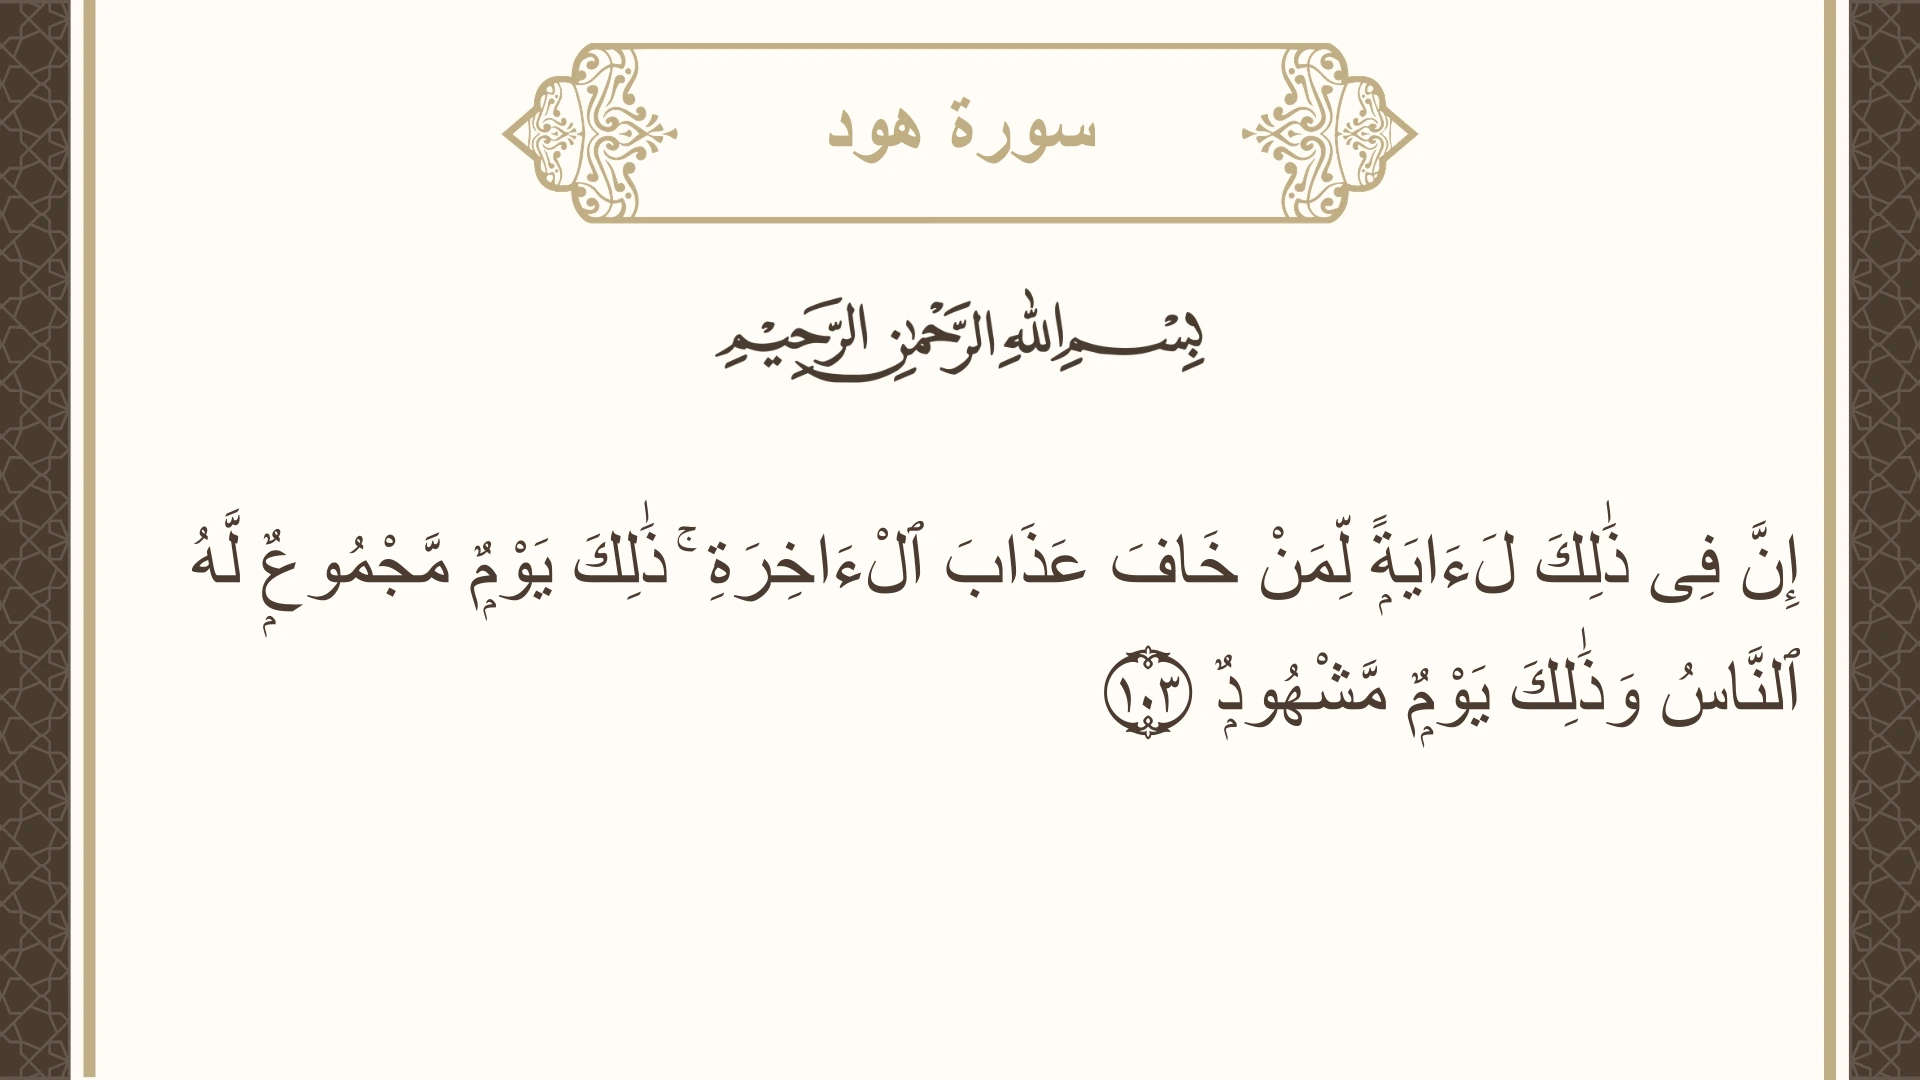 سورة هود
بِسْمِ اللهِ الرَّحْمٰنِ الرَّحِيْمِ
إِنَّ فِى ذَٰلِكَ لَـَٔايَةًۭ لِّمَنْ خَافَ عَذَابَ ٱلْـَٔاخِرَةِ ۚ ذَٰلِكَ يَوْمٌۭ مَّجْمُوعٌۭ لَّهُ
ٱلنَّاسُ وَذَٰلِكَ يَوْمٌۭ مَّشْهُودٌۭ ١٠٣